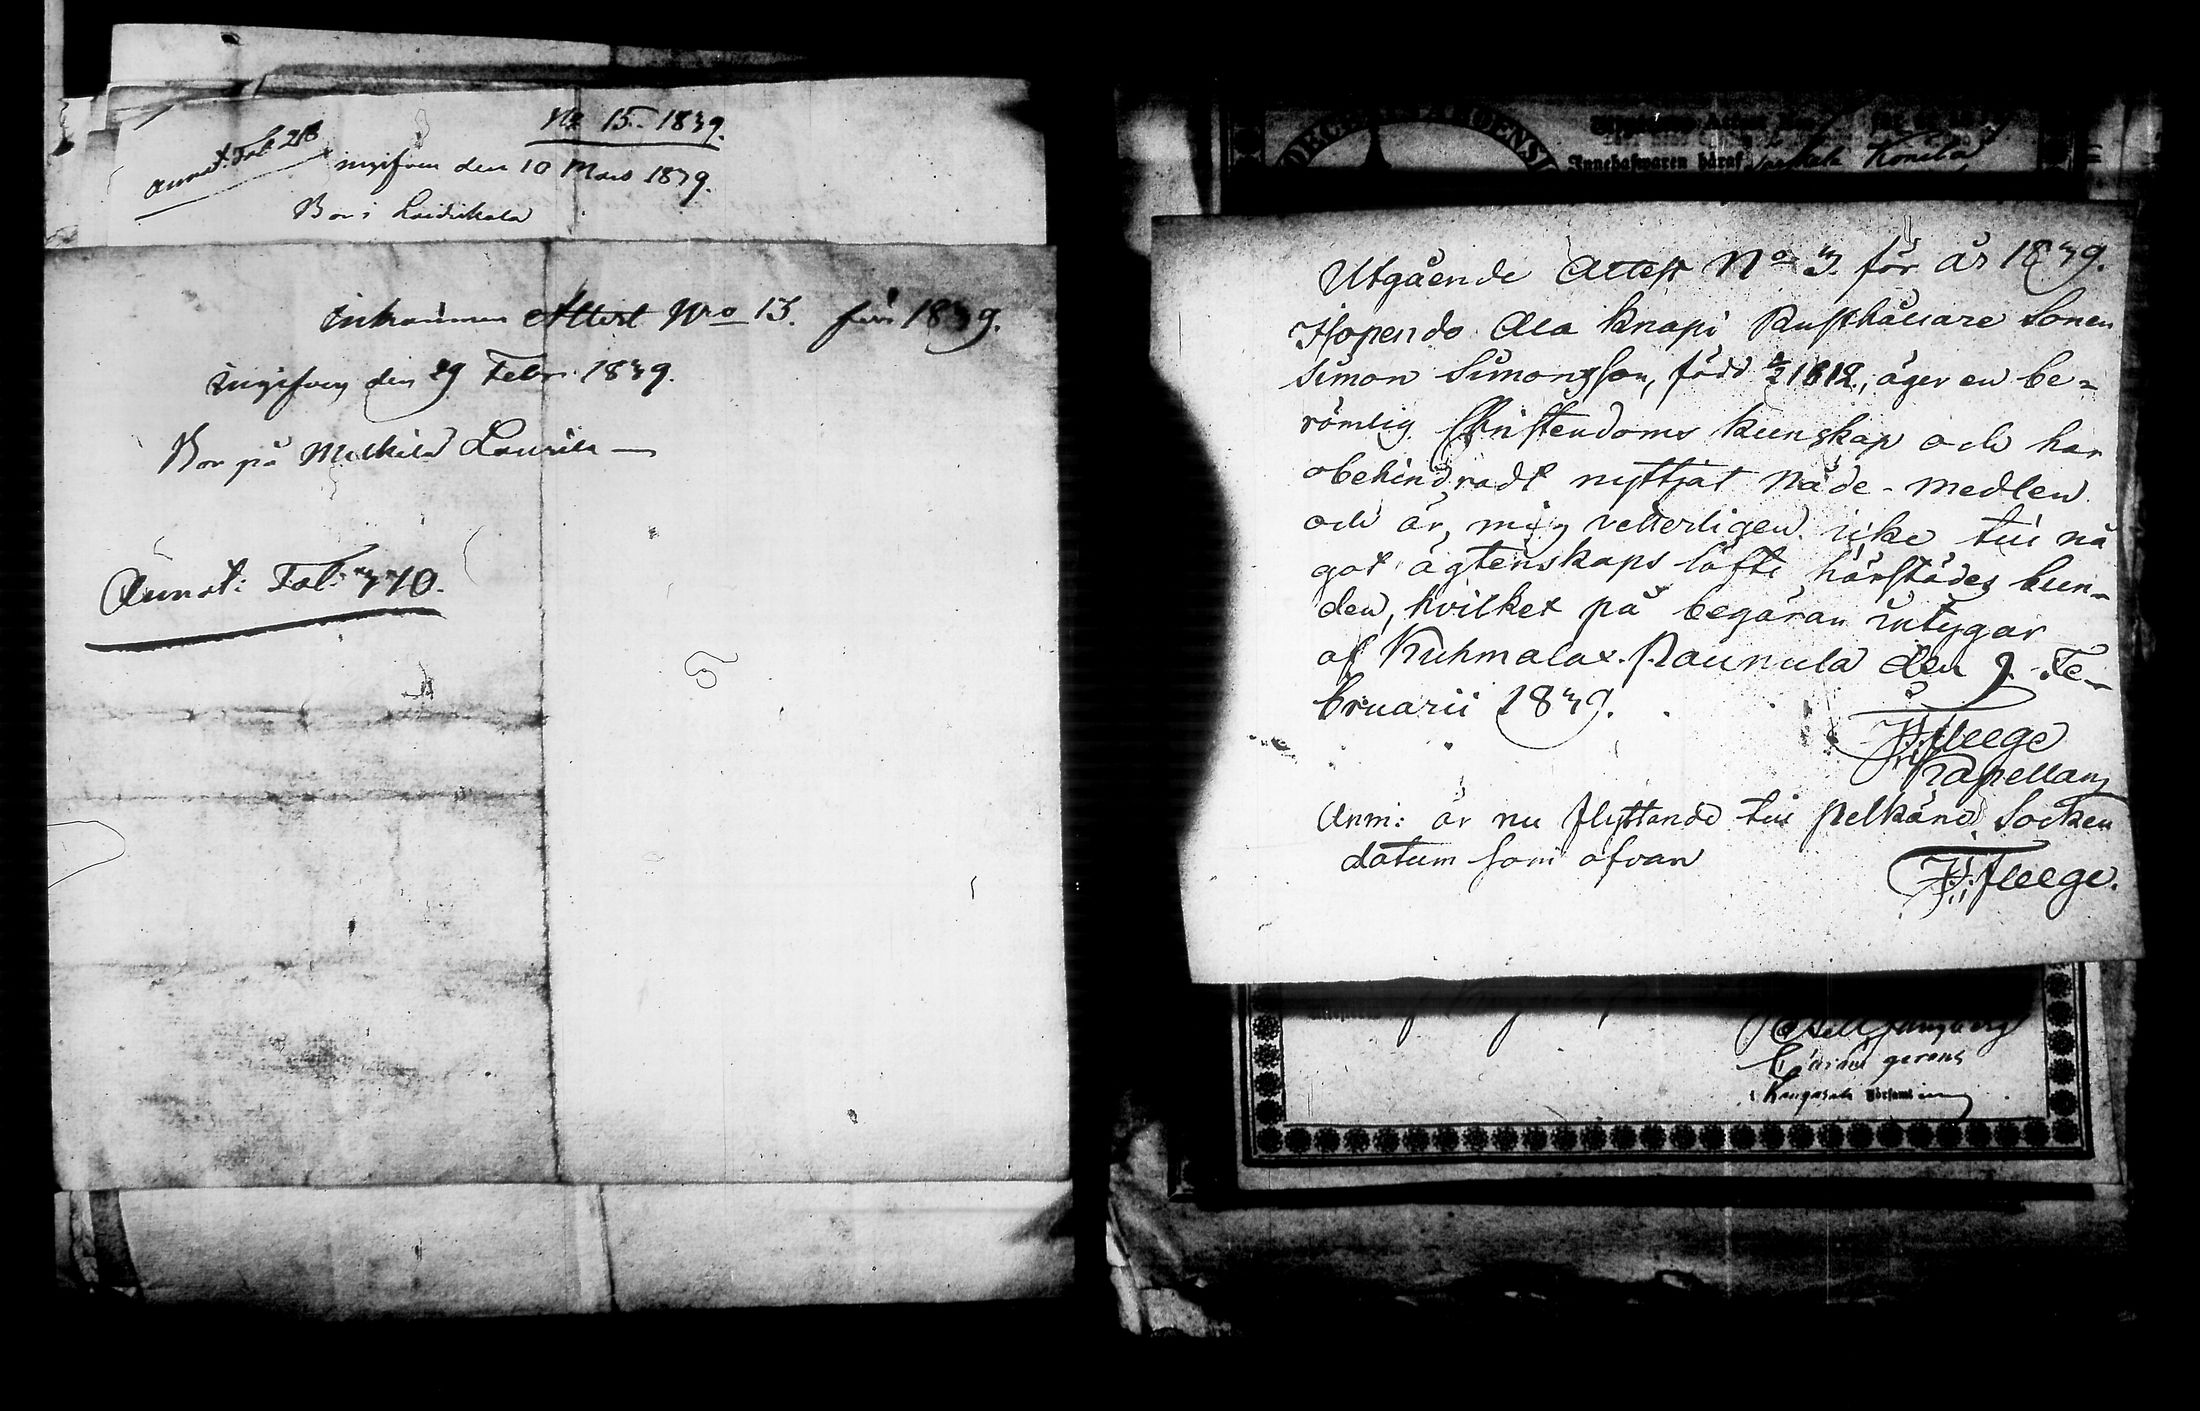 No 15. 1839.
Annot. Fol. 218
ingifven den 10 Mars 1839.
Bor i Laidikala
Inkommen Attest Nro 13. för 1839.
Ingifven den 29 Febr. 1839.
Bor på Mälkilä Laurila
Annot: Fol: 770.
DECRET ABOENSI
Innehafwaren häraf
Utgående Attest No 3. för år 1839.
Isopendo Ala Knapi Rusthållare Sonen
Simon Simonsson, född 1812, äger en be-
römlig Christendoms kunskap och har
obehindradt nyttjat Nåde-medlen
och är, mig vetterligen icke till nå
got ägtenskaps löfte härstädes bun-
den, hvilket på begäran intygar
af Kuhmalax. Raunula den 9. Fe-
bruarii 1839.
Fleege
Kapellan
Anm: är nu flyttande till Pelkäne Socken
datum som ofvan
Fleege.
gerens
Kangasala Församl